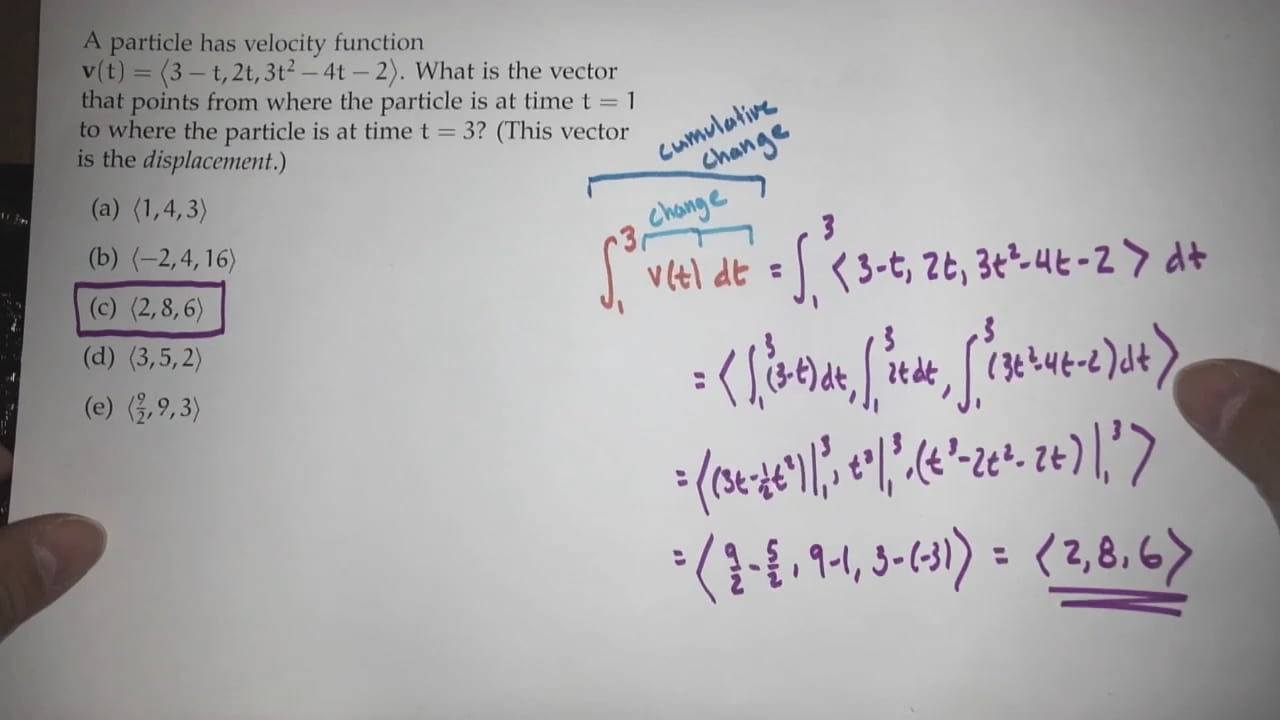 A particle has velocity function
v(t) = ⟨3 − t, 2t, 3t² − 4t − 2⟩. What is the vector
that points from where the particle is at time t = 1
to where the particle is at time t = 3? (This vector
is the displacement.)
(a) ⟨1, 4, 3⟩
(b) ⟨−2, 4, 16⟩
(c) ⟨2, 8, 6⟩
(d) ⟨3, 5, 2⟩
(e) ⟨9/2, 9, 3⟩
cumulative
change
change
∫₁³ v(t) dt = ∫₁³ ⟨3-t, 2t, 3t²-4t-2⟩ dt
= ⟨∫₁³(3-t)dt, ∫₁³ 2t dt, ∫₁³(3t²-4t-2)dt⟩
= ⟨(3t-½t²)|₁³, t²|₁³, (t³-2t²-2t)|₁³⟩
= ⟨9/2 - 5/2, 9-1, 3-(-3)⟩ = ⟨2, 8, 6⟩